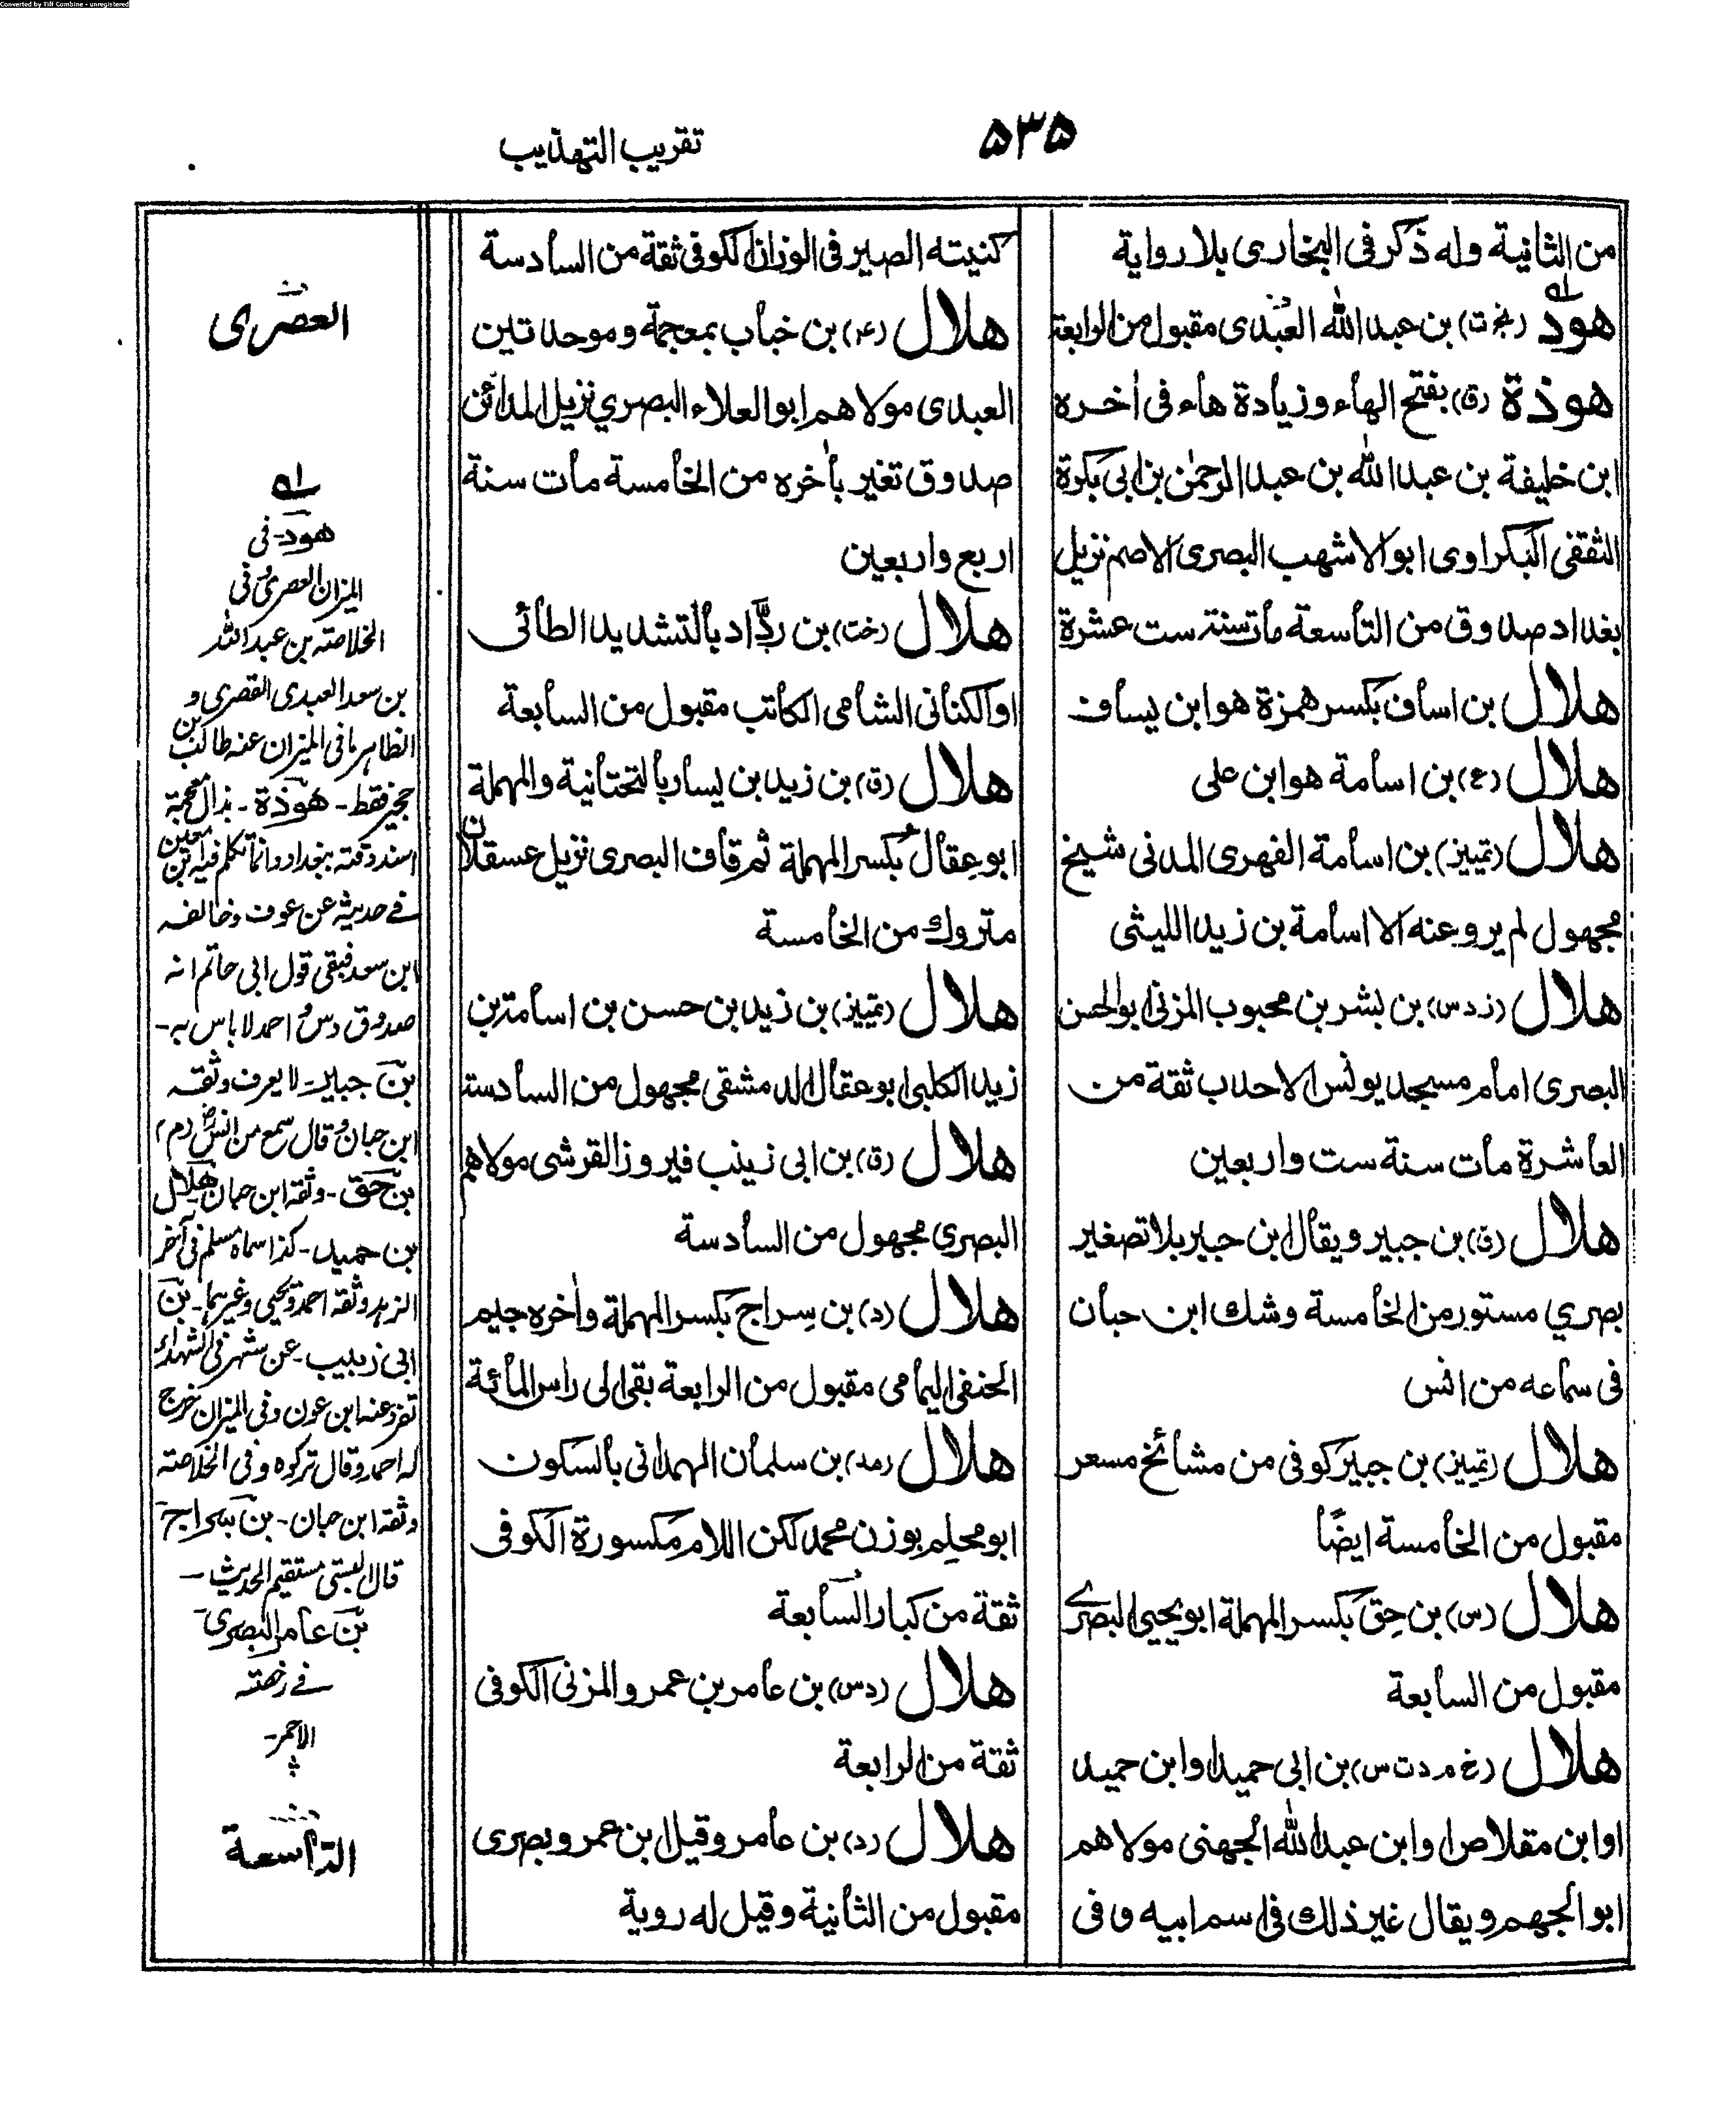 Converted by Tiff Combine - unregistered
۵۳۵
تقريب التهذيب
من الثانية وله ذكر فى البخارى بلا رواية
هود (بخ ت) بن عبد الله العبدى مقبول من الرابعة
هوذة (ق) بفتح الهاء وزيادة هاء فى أخره
ابن خليفة بن عبد الله بن عبد الرحمن بن ابى بكرة
الثقفى البكراوى ابو الاشهب البصرى الاصم نزيل
بغداد صدوق من التاسعة مات سنة ست عشرة
هلال بن اساف بكسر همزة هو ابن يساف
هلال (ع) بن اسامة هو ابن على
هلال (تمييز) بن اسامة الفهرى المدنى شيخ
مجهول لم يرو عنه الا اسامة بن زيد الليثى
هلال (ز د س) بن بشر بن محبوب المزنى ابو الحسن
البصرى امام مسجد يونس الاحدب ثقة من
العاشرة مات سنة ست واربعين
هلال (ق) بن جبير ويقال ابن جبر بلا تصغير
بصري مستور من الخامسة وشك ابن حبان
فى سماعه من انس
هلال (تمييز) بن جبير كوفى من مشائخ مسعر
مقبول من الخامسة ايضًا
هلال (س) بن حِق بكسر المهملة ابو يحيى البصرے
مقبول من السابعة
هلال (خ م د ت س) بن ابى حميد او ابن حميد
او ابن مقلاص او ابن عبد الله الجهنى مولاهم
ابو الجهم ويقال غير ذلك فى اسم ابيه و فى
كنيته الصيرفى الوزان الكوفى ثقة من السادسة
هلال (عه) بن خباب بمعجمة وموحدتين
العبدى مولاهم ابو العلاء البصري نزيل المدائن
صدوق تغير بأخره من الخامسة مات سنة
اربع واربعين
هلال (خت) بن ردّاد بالتشديد الطائى
او الكنانى الشامى الكاتب مقبول من السابعة
هلال (ق) بن زيد بن يسار بالتحتانية والمهملة
ابو عِقال بكسر المهملة ثم قاف البصرى نزيل عسقلان
متروك من الخامسة
هلال (تمييز) بن زيد بن حسن بن اسامة بن
زيد الكلبى ابو عقال الدمشقى مجهول من السادسة
هلال (ق) بن ابى زينب فيروز القرشى مولاهم
البصري مجهول من السادسة
هلال (د) بن سِراج بكسر المهملة وأخره جيم
الحنفى اليمامى مقبول من الرابعة بقى الى راس المائة
هلال (مد) بن سلمان الهمدانى بالسكون
ابو محلِم بوزن محمد لكن اللام مكسورة الكوفى
ثقة من كبار السابعة
هلال (د س) بن عامر بن عمرو المزنى الكوفى
ثقة من الرابعة
هلال (د) بن عامر وقيل بن عمرو بصرى
مقبول من الثانية وقيل له روية
العصرى
هود ۔ فى
الميزان العصرى و فى
الخلاصة بن عبد الله
بن سعد العبدى القصرى و
الظاهر ما فى الميزان عنه طالب بن
حجير فقط ۔ هوذة ۔ بذال معجمة
اسند وقته ببغداد وانما تكلم فيه ابن معين
فے حديثه عن عوف وخالفه
ابن سعد فبقى قول ابى حاتم انه
صدوق و احمد لا باس به ۔
بن جبير ۔ لا يعرف وثقه
ابن حبان و قال سمع من انس
بن حق ۔ وثقه ابن حبان هلال
بن حميد ۔ كذا سماه مسلم فى آخر
الزهد وثقه احمد و يحيى وغيرهما ۔ بن
ابى زينب ۔ عن شهر فى الشهداء
تفرد عنه ابن عون و فى الميزان خرج
له احمد وقال تركوه و فى الخلاصة
وثقه ابن حبان ۔ بن سراج
قال البستى مستقيم الحديث ۔
بن عامر البصرى
فے
الاحمر ۔
التاسعة